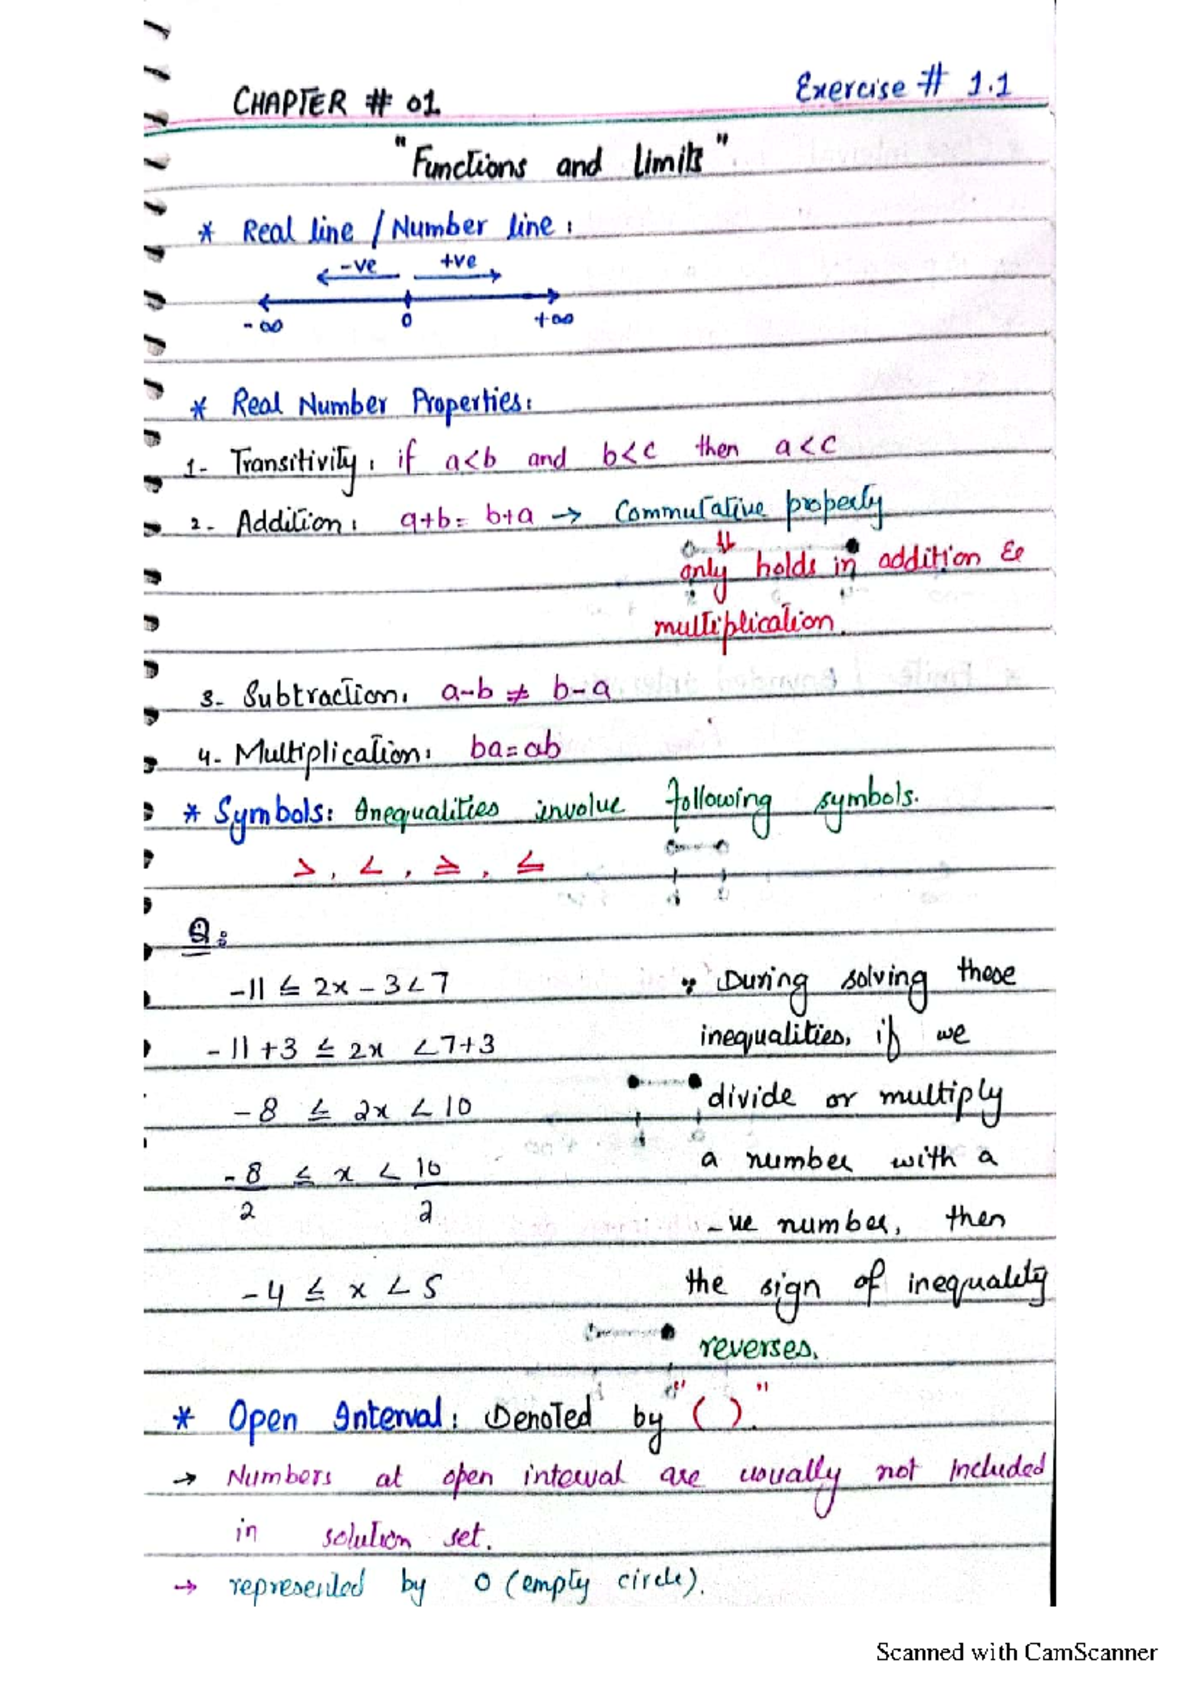 CHAPTER # 01 Exercise # 1.1
"Functions and limits"
* Real line / Number line :
-ve +ve
-∞ 0 +∞
* Real Number Properties:
1- Transitivity : if a<b and b<c then a<c
2- Addition : a+b = b+a → Commutative property
⇓
only holds in addition &
multiplication.
3- Subtraction: a-b ≠ b-a
4- Multiplication: ba=ab
* Symbols: Inequalities involve following symbols.
> , < , ≥ , ≤
Q:
-11 ≤ 2x - 3 < 7
-11 +3 ≤ 2x < 7+3
-8 ≤ 2x < 10
-8/2 ≤ x < 10/2
-4 ≤ x < 5
During solving these
inequalities, if we
divide or multiply
a number with a
-ve number, then
the sign of inequality
reverses.
* Open Interval: Denoted by "( )".
→ Numbers at open interval are usually not included
in solution set.
→ represented by O (empty circle).
Scanned with CamScanner